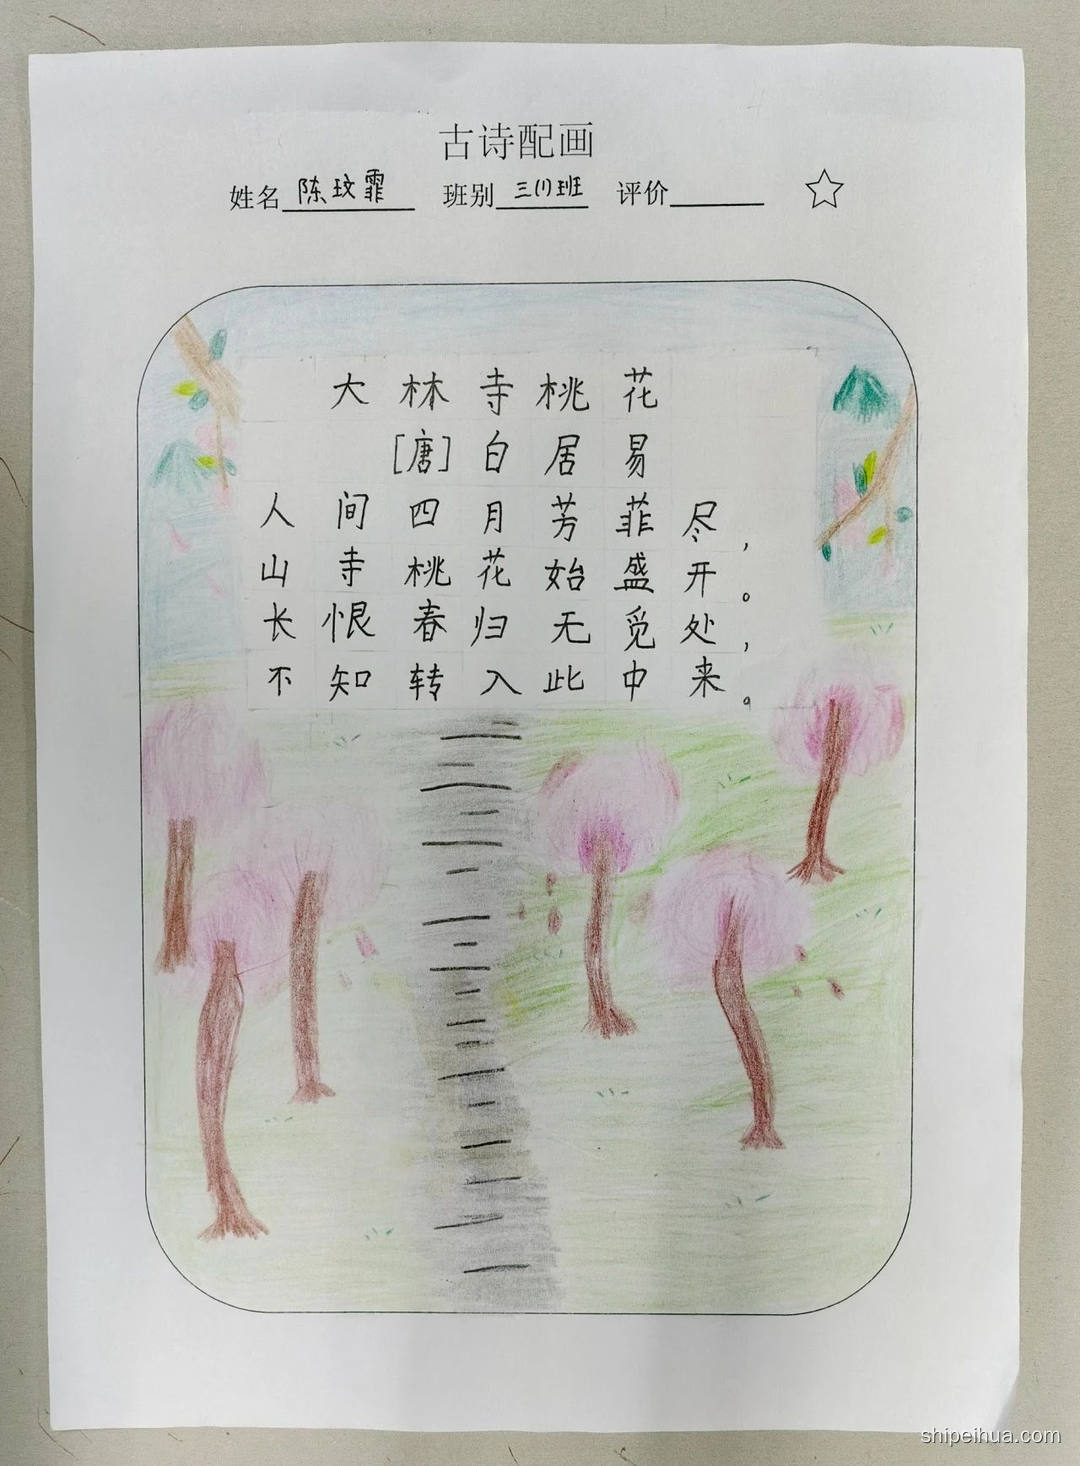 古诗配画
姓名 陈玟霏 班别 三(1)班 评价
大林寺桃花
[唐]白居易
人间四月芳菲尽，
山寺桃花始盛开。
长恨春归无觅处，
不知转入此中来。
shipeihua.com